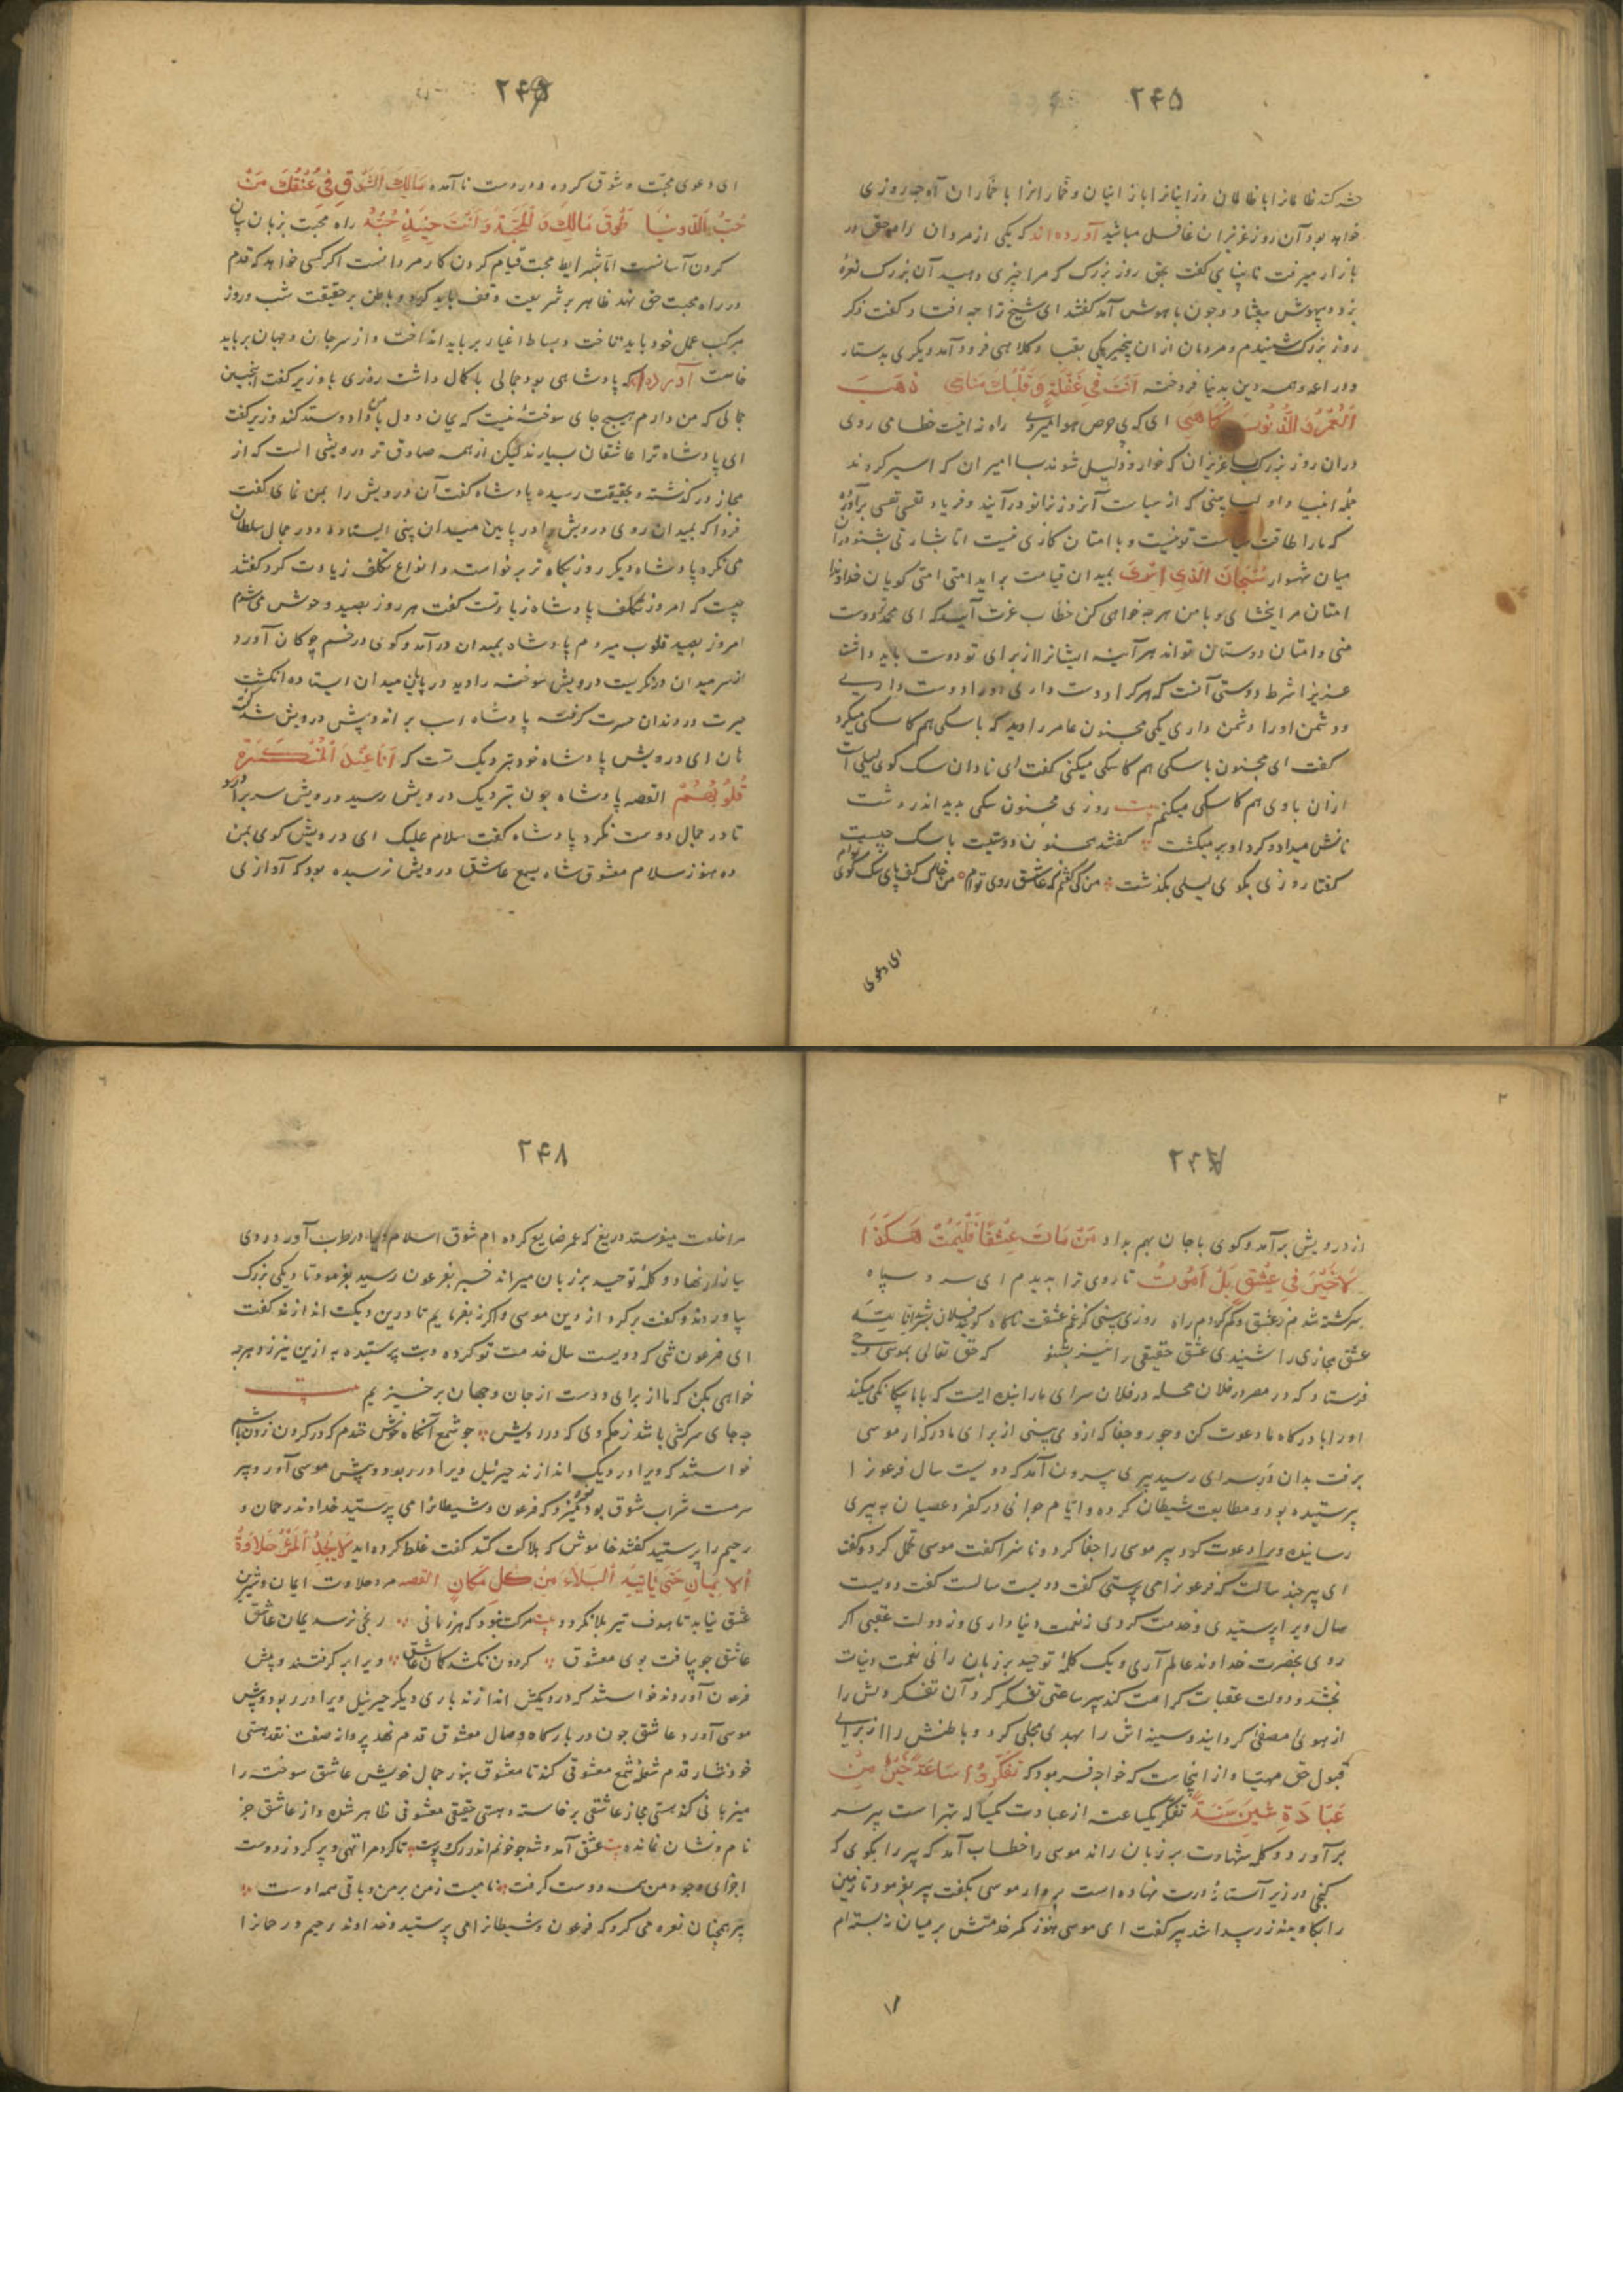 ۲۴۵
حشر کنند ظالمانرا با ظالمان و زانیانرا با زانیان و خمارانرا با خماران آه چه روزی
خواهد بود آن روز عزیزان غافل مباشید آورده‌اند که یکی از مردان راه حق در
بازار میرفت نابینایی گفت بحق روز بزرگ که مرا چیزی دهید آن بزرگ نعرهٔ
بزد و بیهوش بیفتاد و چون با هوش آمد گفتند ای شیخ ترا چه افتاد گفت ذکر
روز بزرگ شنیدم و مردمان ازان بیخبر یکی بقبا و کلاهی فرود آمد و دیگری بدستار
و دراعه و همه دین بدنیا فروخته اَنْتَ فِی غَفْلَةٍ وَ قَلْبُكَ ذَهَبَ
اَلْعُمْرُ وَ الذُّنُوبُ كَمَا هِيَ ای که پی حرص هوا میروی راه نه اینست خطا می روی
دران روز بزرگ بسا عزیزان که خوار و ذلیل شوند بسا امیران که اسیر کردند
جمله انبیا و اولیا بینی که از سیاست آنروز بزانو درآیند و فریاد نفسی نفسی برآورد
که ما را طاقت سیاست تو نیست و با امتان کاری نیست
میان شهسوار سُبْحَانَ الَّذِی اَسْرَی بمیدان قیامت براید امتی امتی کویان خداوندا
امتان مرا بخشای و با من هرچه خواهی کن خطاب عزت آید که ای محمد تو دوست
منی و امتان دوستان تواند هرآینه ایشانرا از برای تو دوست باید داشت
عزیز شرط دوستی آنست که هر کرا دوست داری دوست او را دوست داری
و دشمن او را دشمن داری یکی مجنون عامر را دید که با سکی هم کاسکی میکرد
گفت ای مجنون با سکی هم کاسکی میکنی گفت ای نادان سک کوی لیلی است
ازان با وی هم کاسکی میکنم بیت روزی مجنون سکی بدید اندر دشت
نانش میداد و کرد او بر میکشت گفتند مجنون دوستیت با سک چیست
گفتا روزی بکوی لیلی بگذشت من کی گفتم که عاشق روی توام من خاک کف پای سک کوی توام
ای دعوی
۲۴۶
ای دعوی محبت و شوق کرده و در دوست نا آمده مَالِكَ الشَّوْقِ فِي عُنُقِكَ مِنْ
حُبِّ الدُّنْيَا طَوْقَ مَالِكَ وَ لِلْمَحَبَّةِ وَ اَنْتَ حُبُّهُ راه محبت بزبان بیان
کردن آسانست اما بشرایط محبت قیام کردن کار مردانست اکر کسی خواهد که قدم
در راه محبت حق نهد ظاهر بر شریعت وقف باید کرد و باطن بر حقیقت شب و روز
مرکب عمل خود باید تاخت و بساط اغیار برباید انداخت و از سر جان و جهان برباید
خاست آورده‌اند که پادشاهی بود جمالی با کمال داشت روزی با وزیر گفت اینچنین
جمالی که من دارم هیچ جای سوختهٔ نیست که بمان و دل با من داد و ستد کند وزیر گفت
ای پادشاه ترا عاشقان بسیارند لیکن از همه صادق تر درویشی است که از
مجاز در گذشته و بحقیقت رسیده پادشاه گفت آن درویش را بمن نمای گفت
فردا که بمیدان روی درویش را در پایین میدان بینی ایستاده و در جمال سلطان
می نگرد پادشاه دیگر روز پگاه تر برخواست و انواع تکلف زیادت کرد گفتند
چیست که امروز تکلف پادشاه زیادتست گفت هر روز بصید وحوش می شدم
امروز بصید قلوب میروم پادشاه بمیدان درآمد و کوی در خم چوکان آورد
از سر میدان در نگریست درویش سوخته را دید در پایان میدان ایستاده انکشت
حیرت در دندان حسرت گرفته پادشاه اسب براند و پیش درویش شد گفت
هان ای درویش پادشاه خود بنزدیک تست که اَنَا عِنْدَ اَلْمُنْكَسِرَةِ
قُلُوبُهُمْ القصه پادشاه چون بنزدیک درویش رسید درویش سر برآورد
تا در جمال دوست نگرد پادشاه گفت سلام علیک ای درویش کوی بمن
ده هنوز سلام معشوق شاه بسمع عاشق درویش نرسیده بود که آوازی
۲۴۷
از درویش برآمد و کوی با جان بهم بداد مَنْ مَاتَ عِشْقًا فَلْيَمُتْ هٰكَذَا
لَاخَيْرَ فِي عِشْقٍ بَلْ اَمُوتُ تا روی ترا بدیدم ای سرو سپاه
سرکشته شدم ز عشق و کم کردم راه روزی بینی کز غم عشقت ناکاه کویند فلان بشد
عشق مجازی را شنیدی عشق حقیقی را نیز بشنو که حق تعالی بموسی وحی
فرستاد که در مصر در فلان محله در فلان سرای ما را بنده ایست که با ما بیکانگی میکند
او را با درگاه ما دعوت کن و جور و جفا که ازو بینی از برای ما در گذار موسی
برفت بدان در سرای رسید پیری بیرون آمد که دویست سال فرعون را
پرستیده بود و مطابعت شیطان کرده و ایام جوانی در کفر و عصیان به پیری
رسانیده ویرا دعوت کرد پیر موسی را جفا کرد و ناسزا گفت موسی تحمل کرد و گفت
ای پیر چند سالست که فرعون را می پرستی گفت دویست سالست گفت دویست
سال ویرا پرستیدی و خدمت کردی نه نعمت دنیا داری و نه دولت عقبی اکر
روی بحضرت خداوند عالم آری و یک کلمهٔ توحید بر زبان رانی نعمت دنیات
بخشد و دولت عقبات کرامت کند پیر ساعتی تفکر کرد آن تفکر دلش را
از هوی مصفی کردانید و سینه اش را بهدی مجلی کرد و باطنش را از برای
قبول حق مهیا و از اینجاست که خواجه فرمود که تَفَكَّرُوا سَاعَةً خَيْرٌ مِنْ
عِبَادَةِ سِتِّينَ سَنَةً تفکر یکساعت از عبادت یکساله بهتر است پیر سر
برآورد و کلمه شهادت بر زبان راند موسی را خطاب آمد که پیر را بکوی که
گنجی در زیر آستانهٔ درت نهاده است بردار موسی بگفت پیر بفرمود تا زمین
را بکاویند زر پیدا شد پیر گفت ای موسی هنوز کمر خدمتش بر میان نبسته ام
۲۴۸
مرا خلعت میفرستد دریغ که عمر ضایع کرده ام شوق اسلام ویرا در طرب آورد روی
ببازار نهاد و کلمهٔ توحید بر زبان میراند خبر بفرعون رسید بفرمود تا دیگی بزرگ
بیاوردند و گفت برکرد از دین موسی و اکر نه بفرمایم تا درین دیگت اندازند گفت
ای فرعون کسی که دویست سال خدمت تو کرده و بت پرستیده به ازین نیرزد هرچه
خواهی بکن که ما از برای دوست از جان و جهان برخیزیم بیت
چه جای سرکشی باشد ز حکم وی که در رویش چو شمع آنگاه خوش خندم که در کردن زدن باشم
خواستند که ویرا در دیگ اندازند جبرئیل ویرا در ربود و پیش موسی آورد پیر
سرمست شراب شوق بود نعره میزد که فرعون و شیطانرا می پرستید خداوند رحمان و
رحیم را پرستید گفتند خاموش که هلاکت کند گفت غلط کرده اید لَا يَجِدُ الْمَرْءُ حَلَاوَةَ
الْاِيمَانِ حَتّٰی يَأْتِيَهُ الْبَلَاءُ مِنْ كُلِّ مَكَانٍ القصه مرد حلاوت ایمان و شیرین
عشق نیابد تا هدف تیر بلا نگردد بیت مرکت نبود که هر زمانی رنجی نرسد بمان عاشق
عاشق چو بیافت بوی معشوق کردون نکشد کمان عاشق ویرا بر گرفتند و پیش
فرعون آوردند خواستند که در دیگش اندازند باری دیگر جبرئیل ویرا در ربود و پیش
موسی آورد عاشق چون در بارگاه وصال معشوق قدم نهد پروانه صفت نقد هستی
خود نثار قدم شعلهٔ شمع معشوقی کند تا معشوق بنور جمال خویش عاشق سوخته را
میزبانی کند هستی مجاز عاشقی برخاسته و هستی حقیقی معشوقی ظاهر شده و از عاشق جز
نام و نشان نمانده بیت عشق آمد و شد چو خونم اندر رک و پوست تا کرد مرا تهی و پر کرد ز دوست
اجزای وجود من همه دوست گرفت نامیست ز من بر من و باقی همه اوست
پیر همچنان نعره می کرد که فرعون و شیطانرا می پرستید و خداوند رحیم و رحمانرا